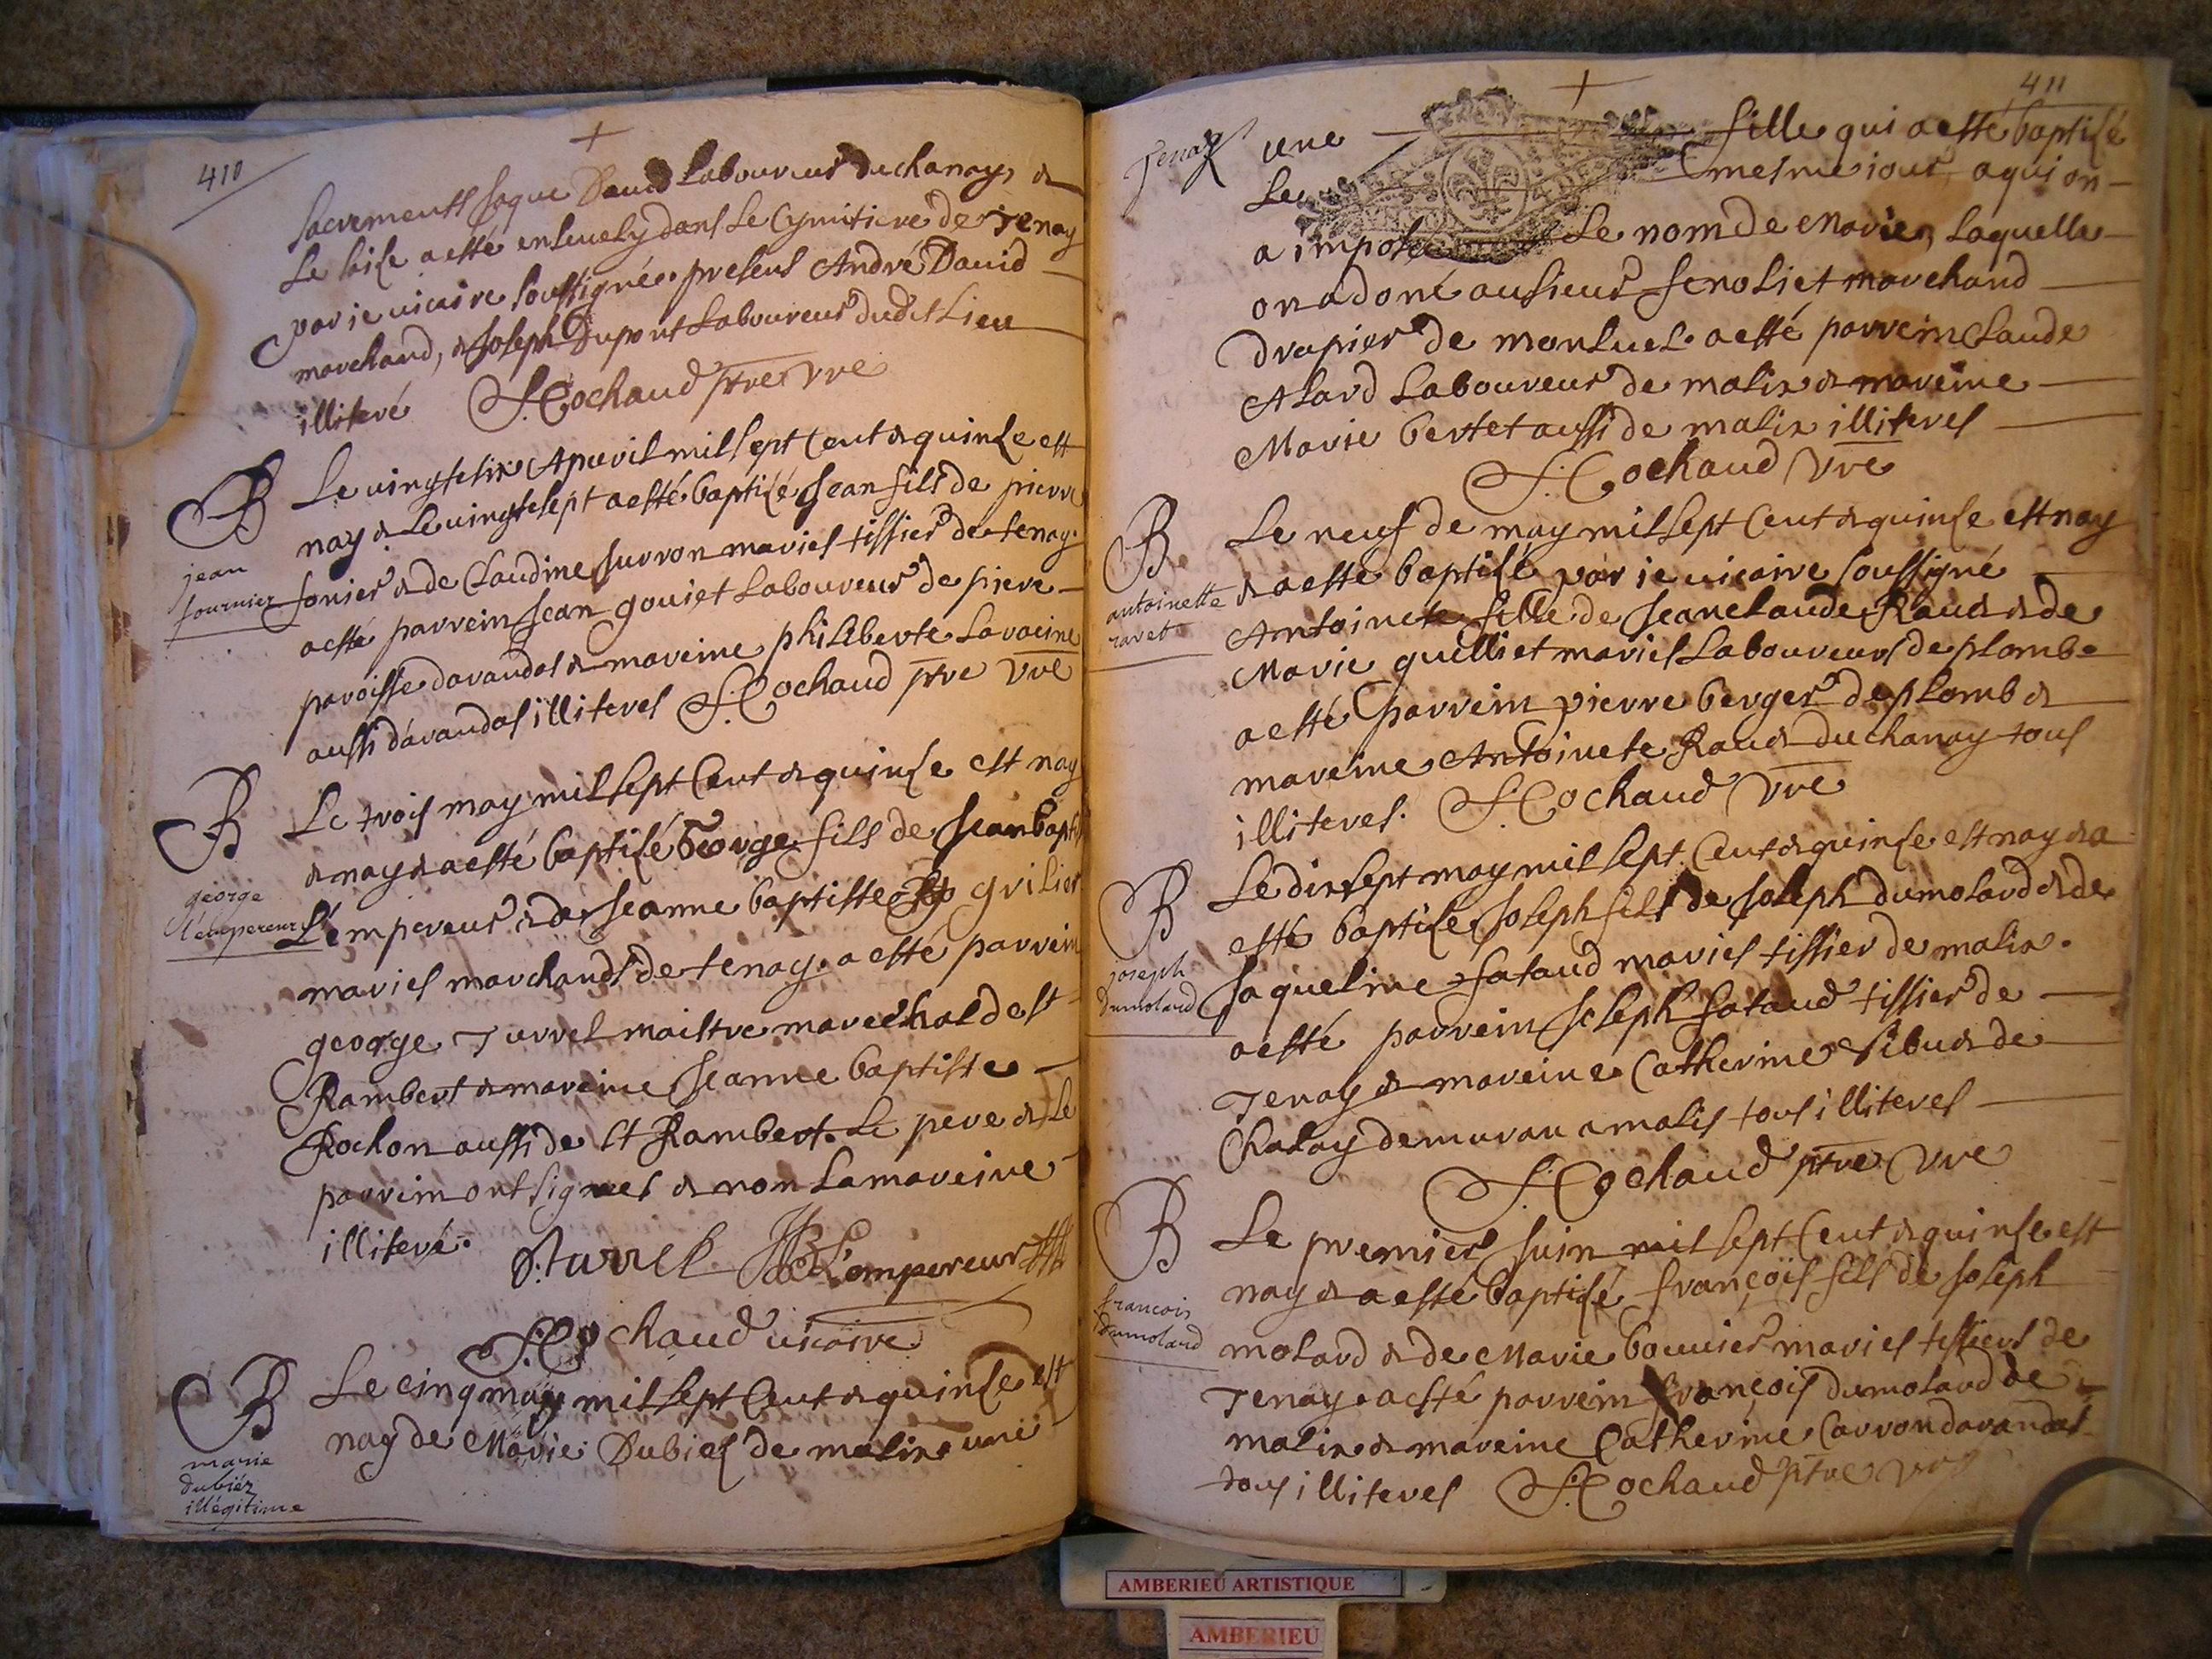 410
sacrements Jaque Dauid Laboureur du chanay, &
Le seise a esté enseuely dans le Cymitiere de Tenay
par ie uicaire soussigné. presens André Dauid
marchand, & Joseph Dupont Laboureur dudit Lieu
illiteré S: Cochaud ptre vre
B
Le uingtsix Apuril mil sept Cent & quinse est
nay & Le uingtsept a esté baptisé Jean fils de pierre
jean
fournier
fonier & de Claudine surron mariés tissier de tenay.
a esté parrein Jean gouiet Laboureur de piere
paroisse darandas & mareine philiberte Laracine
aussi d'arandas illiterés S: Cochaud ptre vre
B
Le trois may mil sept Cent & quinse est nay
& nay & a esté baptisé George fils de Jean bapt
george
l'empereur
L'empereur & de Jeanne baptiste grilier
mariés marchands de tenay. a esté parrein
george Turrel maistre marechal de st
Rambert & mareine Jeanne baptiste
Rochon aussi de st Rambert. Le pere & Le
parrein ont signés & non la mareine
illiterée. Turrel JB L'empereur
S: Cochaud uicaire
B
Le cinq may mil sept Cent & quinse est
nay de Marie Dubiez de malix une
marie
dubiéz
illégitime
411
Tenay
une fille qui a esté baptisé
Le mesme iour, a qui on
a imposé Le nom de Marie, Laquelle
on a doné au sieur Jenoliet marchand
drapier de monluel. a esté parrein Claude
Alard Laboureur de malix & mareine
Marie bertet aussi de malix illiterés
S: Cochaud vre
B
Le neuf de may mil sept Cent & quinse est nay
antoinette
ravet
& a esté baptisé par ie uicaire soussigné
Antoinete fille de Jean claude Raud & de
Marie guilliet mariés Laboureurs de plomb
a esté parrein pierre berger de plomb &
mareine Antoinete Raud du chanay tous
illiterés. S: Cochaud vre
B
Le dixsept may mil sept Cent & quinse est nay & a
esté baptisé Joseph fils de Joseph dumolard & de
joseph
dumolard
Jaqueline sataud mariés tissier de malix.
a esté parrein Joseph sataud tissier de
Tenay & mareine Catherine Sibud de
Chalay demurant a malis tous illiterés
S: Cochaud ptre vre
B
Le premier Juin mil sept Cent & quinse est
nay & a esté baptisé françois fils de Joseph
francois
dumolard
molard & de Marie bouuier mariés tissiers de
Tenay. a esté parrein françois dumolard de
malix & mareine Catherine Carron darandas
tous illiterés S: Cochaud ptre vre
AMBERIEU ARTISTIQUE
AMBERIEU